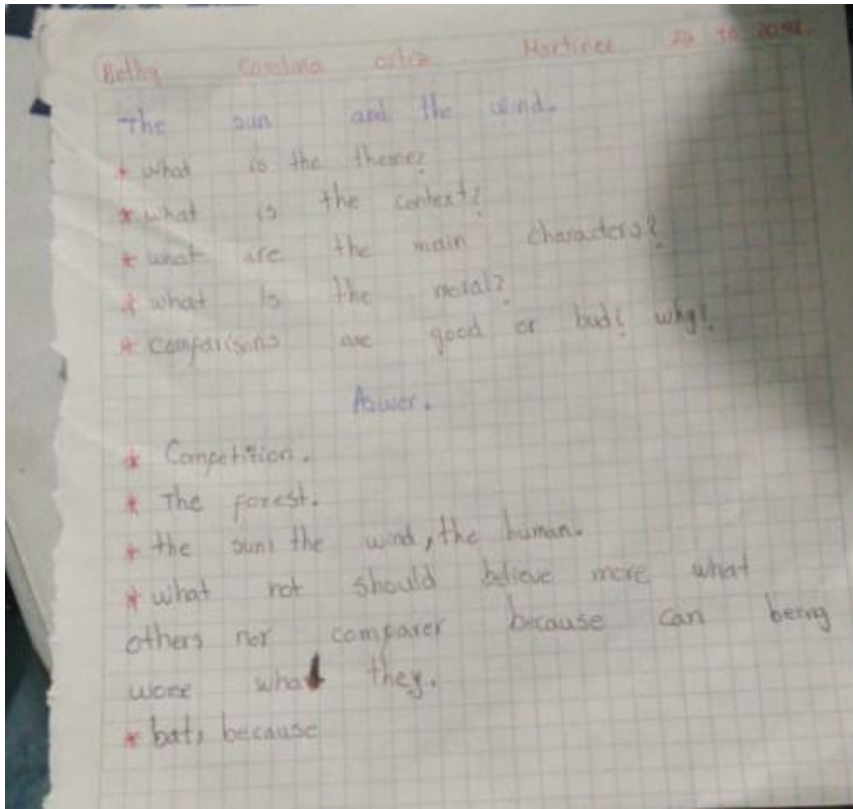 Bethy Carolina Ortiz Martinez
The sun and the wind.
* what is the theme?
* what is the context?
* what are the main characters?
* what is the moral?
* Comparisons are good or bad? why?
Aswer.
* Competition.
* The forest.
* the sun, the wind, the human.
* what not should believe more what
others nor comparer because can being
what they.
* bat, because